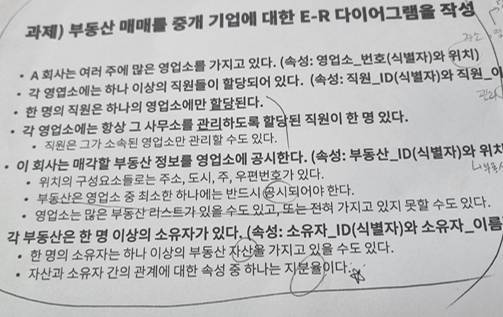 과제) 부동산 매매를 중개 기업에 대한 E-R 다이어그램을 작성
• A 회사는 여러 주에 많은 영업소를 가지고 있다. (속성: 영업소_번호(식별자)와 위치)
• 각 영엽소에는 하나 이상의 직원들이 할당되어 있다. (속성: 직원_ID(식별자)와 직원_이
• 한 명의 직원은 하나의 영업소에만 할당된다.
• 각 영업소에는 항상 그 사무소를 관리하도록 할당된 직원이 한 명 있다.
• 직원은 그가 소속된 영업소만 관리할 수도 있다.
• 이 회사는 매각할 부동산 정보를 영업소에 공시한다. (속성: 부동산_ID(식별자)와 위치
• 위치의 구성요소들로는 주소, 도시, 주, 우편번호가 있다.
• 부동산은 영업소 중 최소한 하나에는 반드시 공시되어야 한다.
• 영업소는 많은 부동산 리스트가 있을 수도 있고, 또는 전혀 가지고 있지 못할 수도 있다.
각 부동산은 한 명 이상의 소유자가 있다. (속성: 소유자_ID(식별자)와 소유자_이름
• 한 명의 소유자는 하나 이상의 부동산 자산을 가지고 있을 수도 있다.
• 자산과 소유자 간의 관계에 대한 속성 중 하나는 지분율이다.